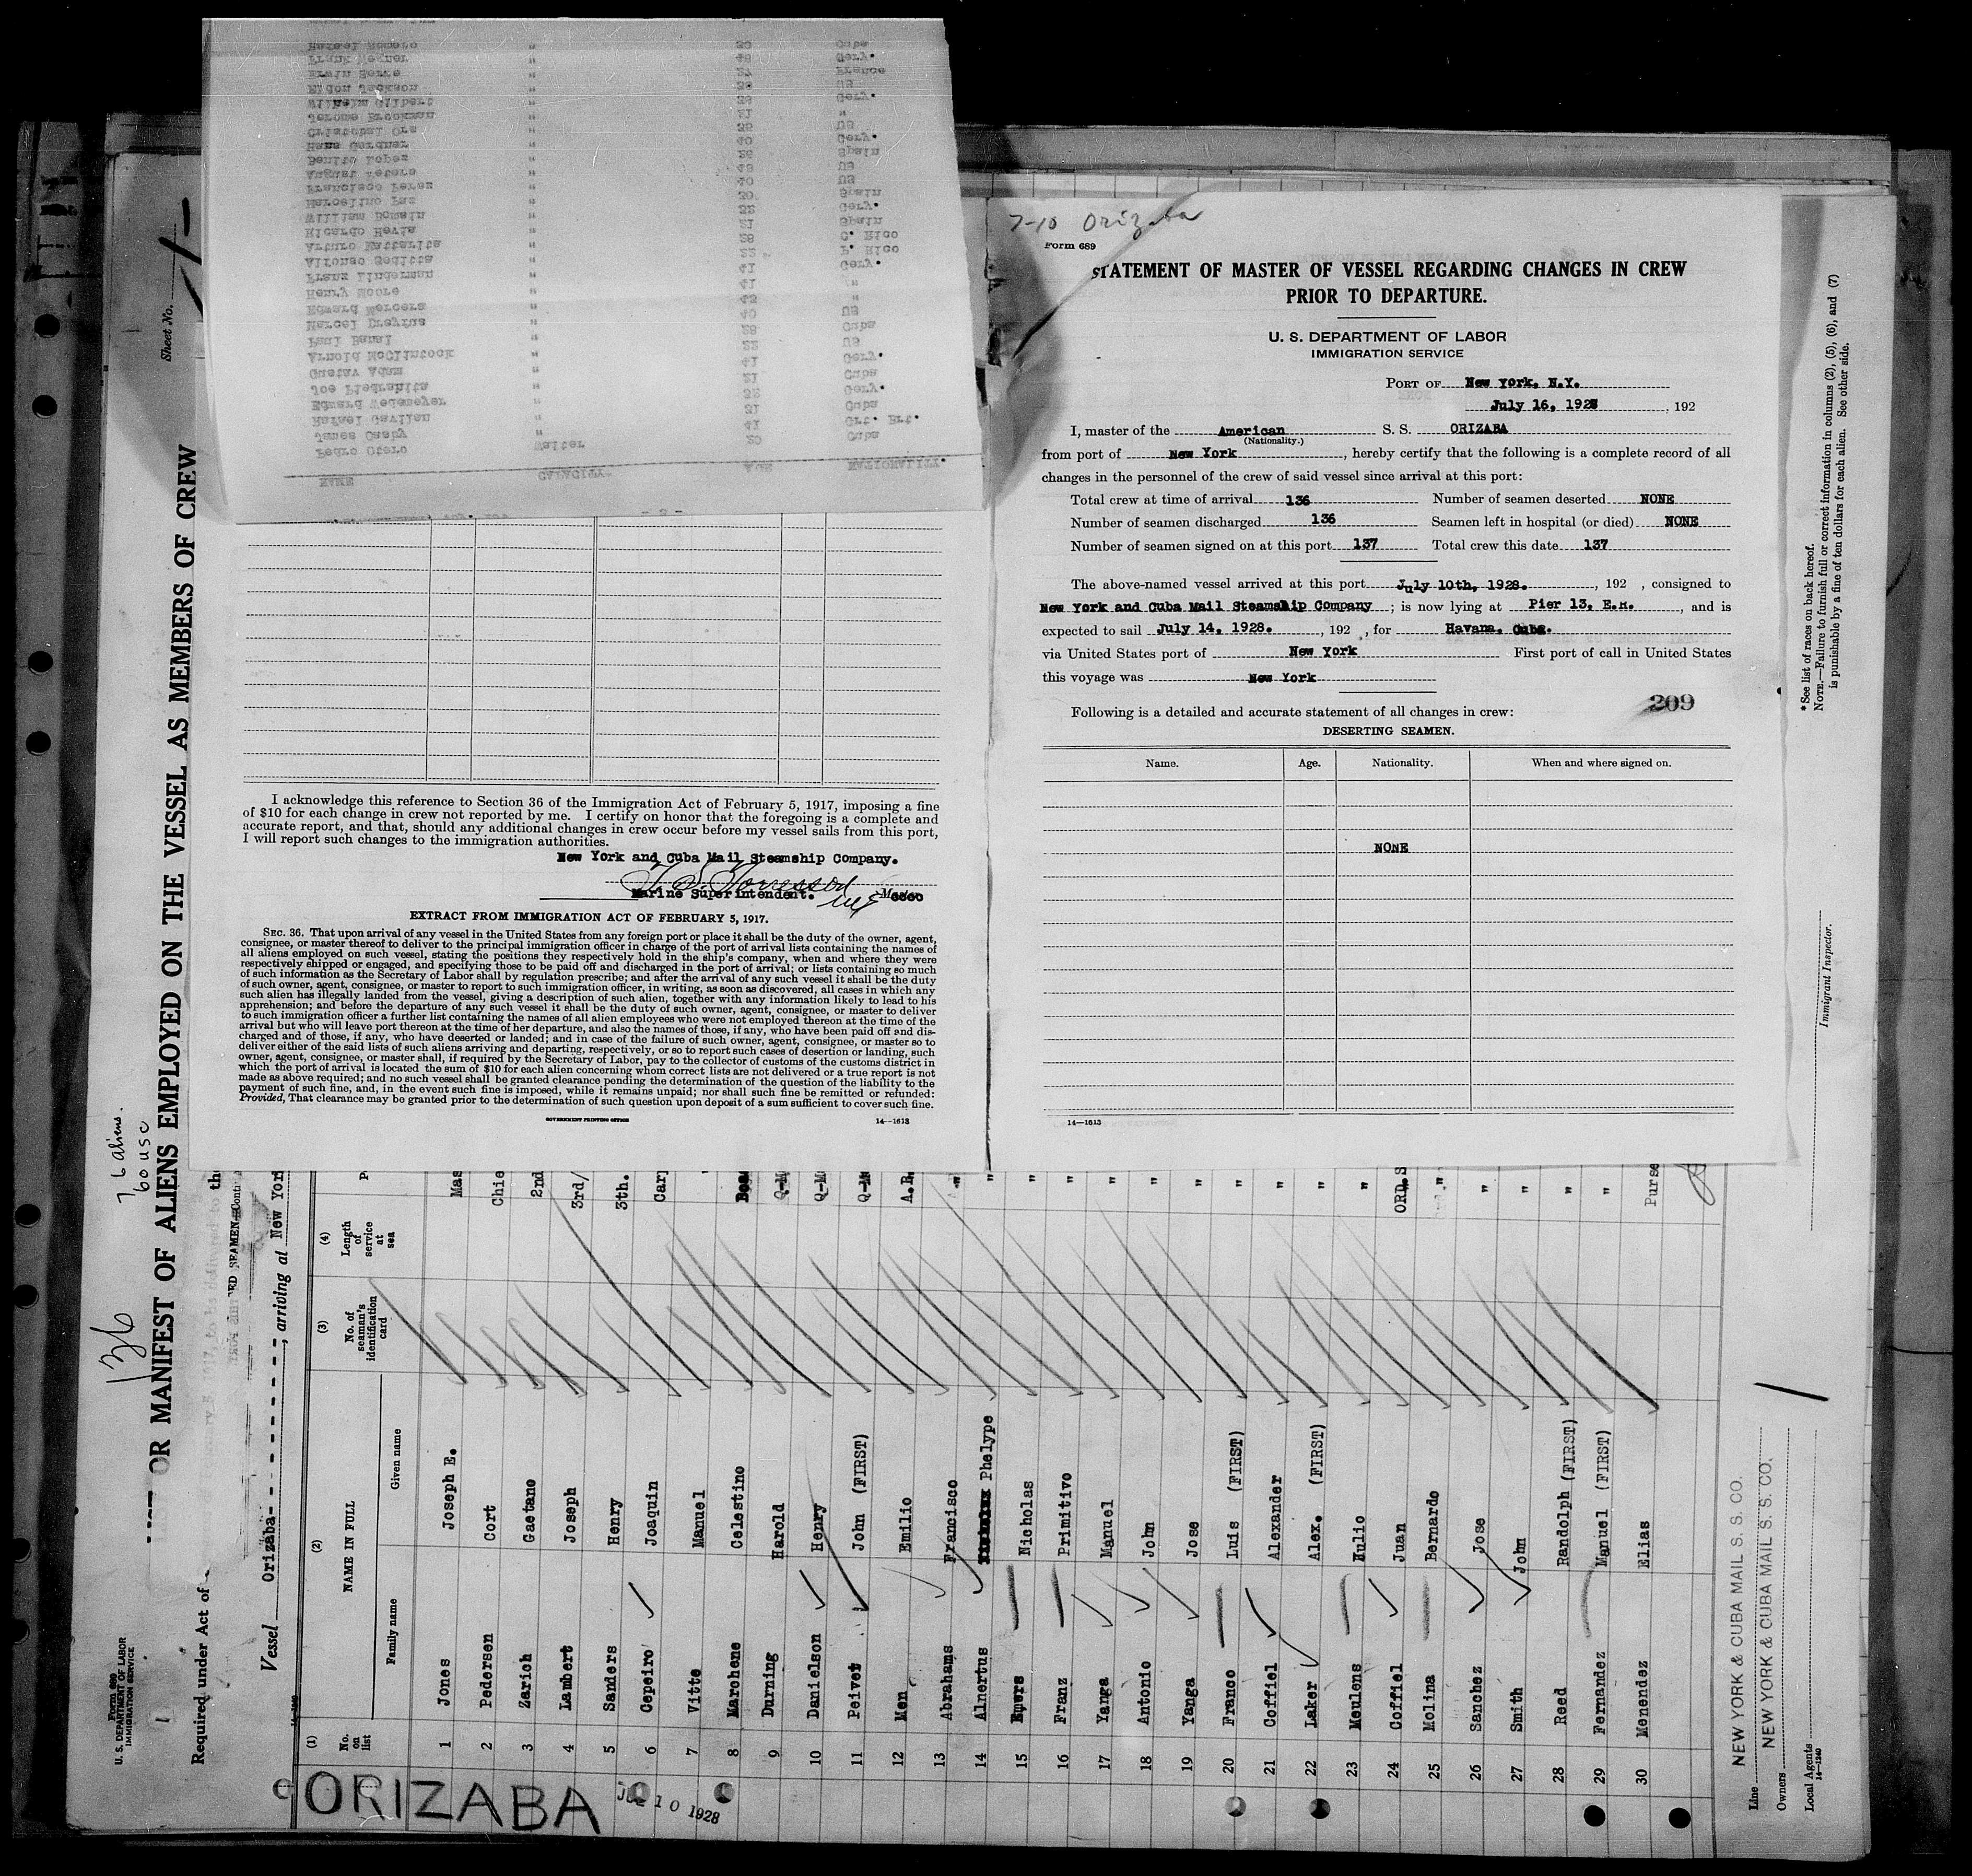 7-10 Orizaba
Form 689
STATEMENT OF MASTER OF VESSEL REGARDING CHANGES IN CREW
PRIOR TO DEPARTURE.
U. S. DEPARTMENT OF LABOR
IMMIGRATION SERVICE
PORT OF New York, N.Y.
July 16, 1928, 192
I, master of the American S. S. ORIZABA
(Nationality.)
from port of New York, hereby certify that the following is a complete record of all
changes in the personnel of the crew of said vessel since arrival at this port:
Total crew at time of arrival 136 Number of seamen deserted NONE
Number of seamen discharged 136 Seamen left in hospital (or died) NONE
Number of seamen signed on at this port 137 Total crew this date 137
The above-named vessel arrived at this port July 10th, 1928. , 192 , consigned to
New York and Cuba Mail Steamship Company ; is now lying at Pier 13, E.R. , and is
expected to sail July 14, 1928. , 192 , for Havana, Cuba.
via United States port of New York First port of call in United States
this voyage was New York
209
Following is a detailed and accurate statement of all changes in crew:
DESERTING SEAMEN.
Name. Age. Nationality. When and where signed on.
NONE
14—1613
NAME CAPACITY AGE NATIONALITY.
Pedro Otero Waiter 20 Cuba
James Casby " 41 Grt. Brt.
Rafael Gavilan " 21 Cuba
Edward Wedemeyer " 32 Gery.
Joe Piedrahita " 21 Cuba
Gustav Adam " 41 Gery.
Arnold McClintock " 22 US
Paul Banal " 28 Cuba
Edward Mercers "
Henry Moore " 41 "
Frank Linderman " 41 Gery.
Alfonso Seditta " 22 P. Rico
Ricardo Hevia " 21 Spain
William Domain " 32 Gery.
Francisco Perez " 40 US
August Peters " 48 US
Benito Lopez " 26 Spain
Hans Gardner " 40 Gery.
Jerome Brookman " 21 "
Wilhelm Gilbert " 36 Gery.
Eldon Jackson " US
Frank Wegner " 48 Gery.
Rafael Romero " Cuba
- 2 -
I acknowledge this reference to Section 36 of the Immigration Act of February 5, 1917, imposing a fine
of $10 for each change in crew not reported by me. I certify on honor that the foregoing is a complete and
accurate report, and that, should any additional changes in crew occur before my vessel sails from this port,
I will report such changes to the immigration authorities.
New York and Cuba Mail Steamship Company.
Marine Superintendent.
EXTRACT FROM IMMIGRATION ACT OF FEBRUARY 5, 1917.
SEC. 36. That upon arrival of any vessel in the United States from any foreign port or place it shall be the duty of the owner, agent,
consignee, or master thereof to deliver to the principal immigration officer in charge of the port of arrival lists containing the names of
all aliens employed on such vessel, stating the positions they respectively hold in the ship's company, when and where they were
respectively shipped or engaged, and specifying those to be paid off and discharged in the port of arrival; or lists containing so much
of such information as the Secretary of Labor shall by regulation prescribe; and after the arrival of any such vessel it shall be the duty
of such owner, agent, consignee, or master to report to such immigration officer, in writing, as soon as discovered, all cases in which any
such alien has illegally landed from the vessel, giving a description of such alien, together with any information likely to lead to his
apprehension; and before the departure of any such vessel it shall be the duty of such owner, agent, consignee, or master to deliver
to such immigration officer a further list containing the names of all alien employees who were not employed thereon at the time of the
arrival but who will leave port thereon at the time of her departure, and also the names of those, if any, who have been paid off and dis-
charged and of those, if any, who have deserted or landed; and in case of the failure of such owner, agent, consignee, or master so to
deliver either of the said lists of such aliens arriving and departing, respectively, or so to report such cases of desertion or landing, such
owner, agent, consignee, or master shall, if required by the Secretary of Labor, pay to the collector of customs of the customs district in
which the port of arrival is located the sum of $10 for each alien concerning whom correct lists are not delivered or a true report is not
made as above required; and no such vessel shall be granted clearance pending the determination of the question of the liability to the
payment of such fine, and, in the event such fine is imposed, while it remains unpaid; nor shall such fine be remitted or refunded:
Provided, That clearance may be granted prior to the determination of such question upon deposit of a sum sufficient to cover such fine.
GOVERNMENT PRINTING OFFICE
14—1613
Form 689
U. S. DEPARTMENT OF LABOR
IMMIGRATION SERVICE
136
76 aliens.
60 USC
Sheet No. 1
OR MANIFEST OF ALIENS EMPLOYED ON THE VESSEL AS MEMBERS OF CREW
Required under Act of
Vessel Orizaba, arriving at New Yor
(1) (2) (3) (4)
No. on list
NAME IN FULL
Family name Given name
No. of seaman's identification card
Length of service at sea
1 Jones Joseph E. Mas
2 Pedersen Cort Chie
3 Zarich Gaetano 2nd
4 Lambert Joseph 3rd/
5 Sanders Henry 3th.
6 Cepeiro Joaquin Car
7 Vitte Manuel "
8 Marchene Celestino Boa
9 Durning Harold Q-M
10 Danielson Henry Q-M
11 Peivet John (FIRST) Q-M
12 Men Emilio A.B.
13 Abrahams Francisco "
14 Alnertus Phelype "
15 Nicholas "
16 Franz Primitivo "
17 Yanga Manuel "
18 Antonio John "
19 Yanga Jose "
20 Franco Luis (FIRST) "
21 Coffiel Alexander "
22 Laker Alex. (FIRST) "
23 Meulens Hulio "
24 Coffiel Juan ORD.S
25 Molina Bernardo "
26 Sanchez Jose "
27 Smith John "
28 Reed Randolph (FIRST) "
29 Fernandez Manuel (FIRST) "
30 Menendez Elias Purse
ORIZABA
JUL 10 1928
Line NEW YORK & CUBA MAIL S. S. CO.
Owners NEW YORK & CUBA MAIL S. S. CO.
Local Agents
14—1240
Immigrant Inspector.
*See list of races on back hereof.
NOTE.—Failure to furnish full or correct information in columns (2), (5), (6), and (7)
is punishable by a fine of ten dollars for each alien. See other side.